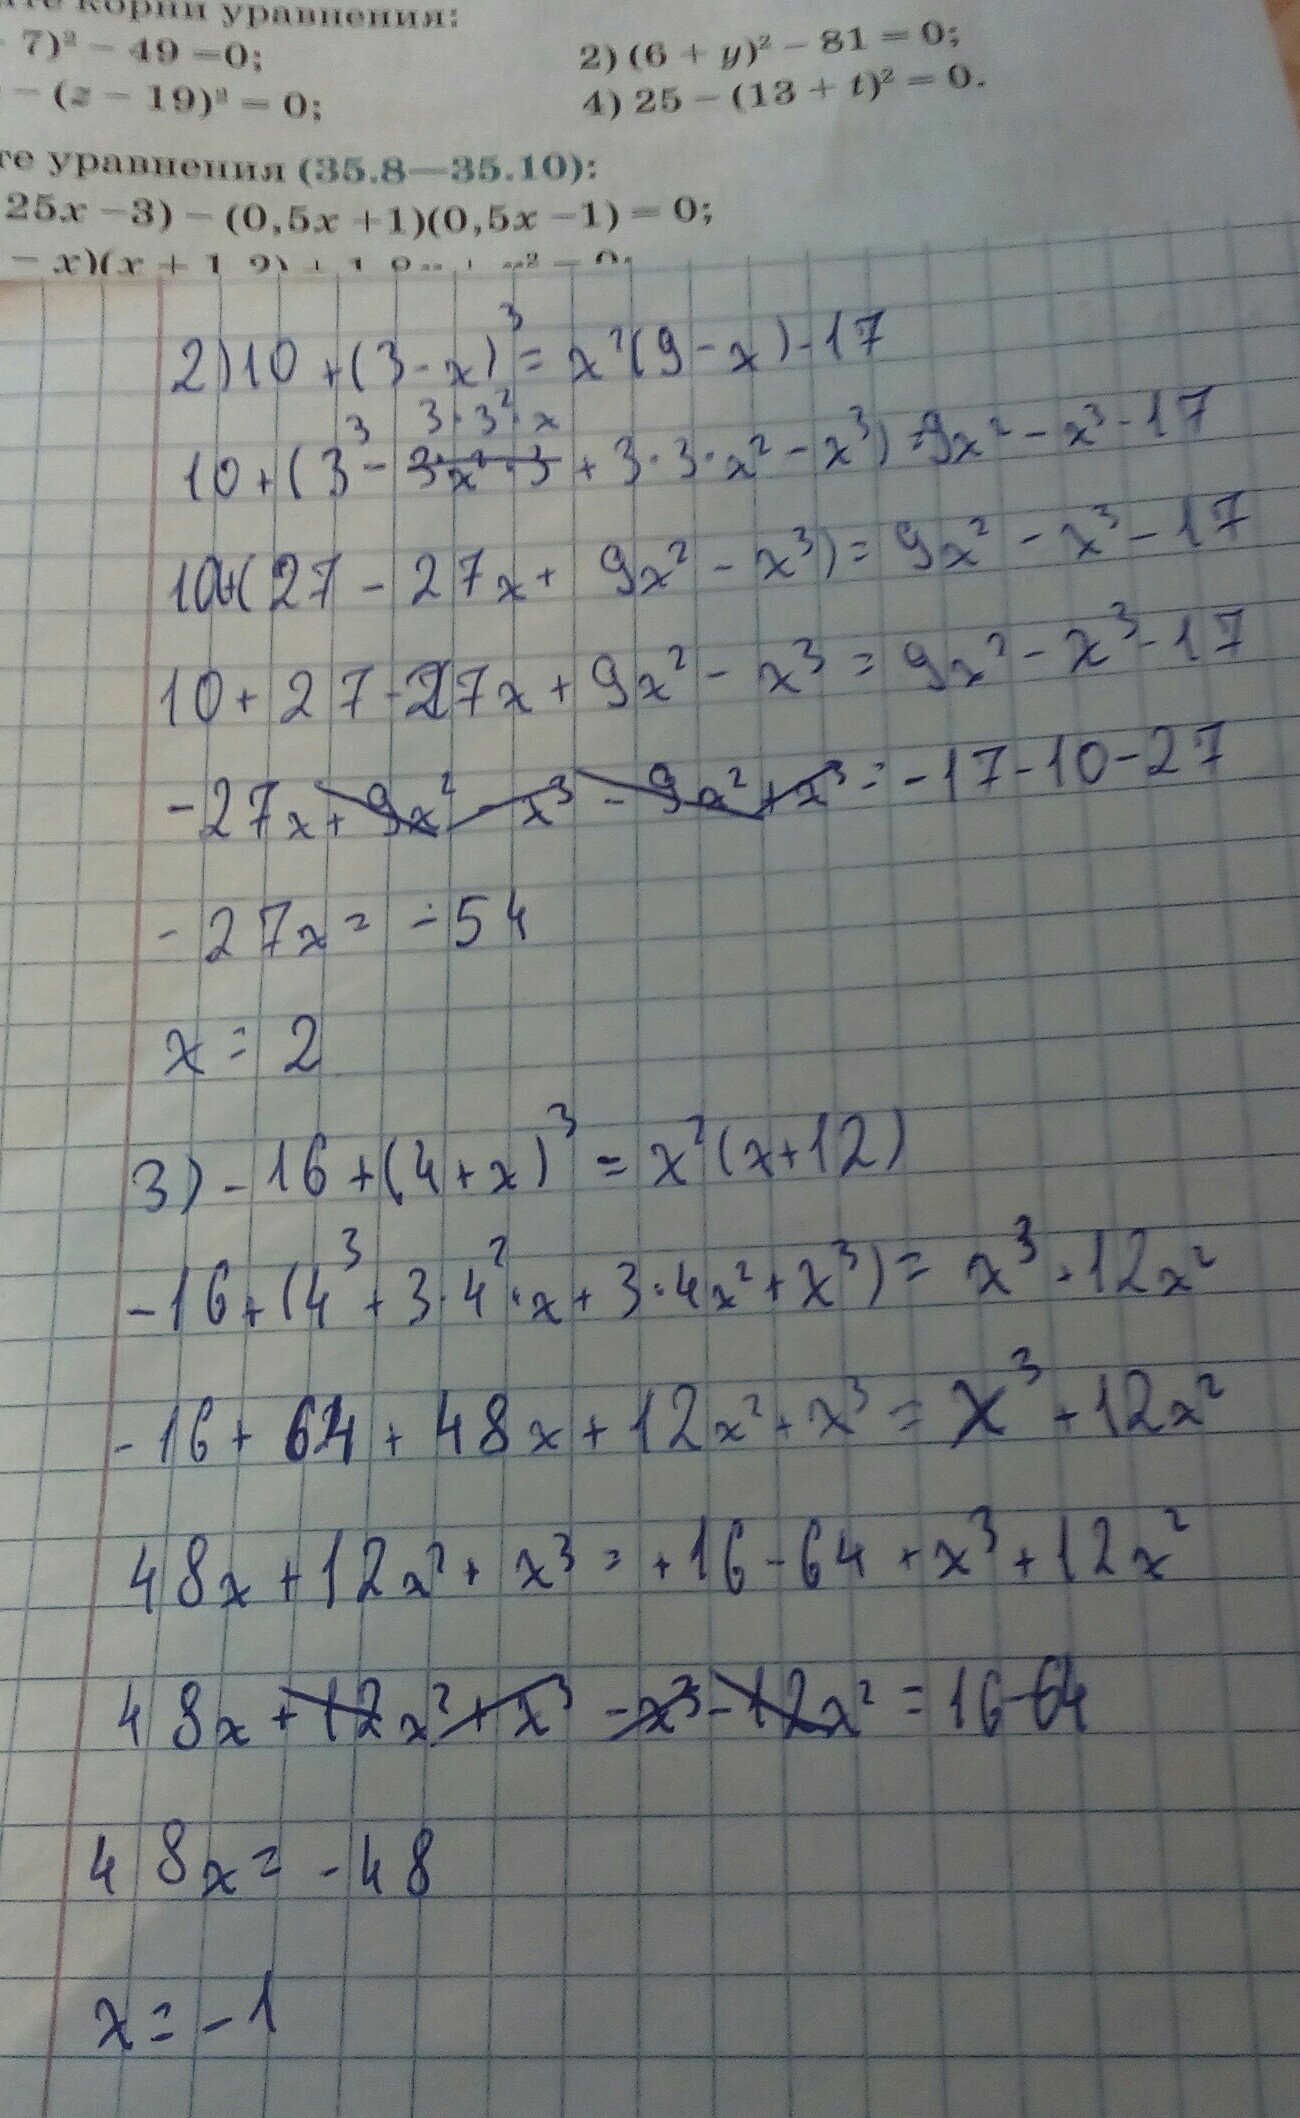 корни уравнения:
7)² − 49 = 0;
2) (6 + y)² − 81 = 0;
− (z − 19)² = 0;
4) 25 − (13 + t)² = 0.
те уравнения (35.8—35.10):
25x − 3) − (0,5x + 1)(0,5x − 1) = 0;
− x)(x + 1
2) 10 + (3 - x)³ = x²(9 - x) - 17
3·3²·x
10 + (3³ - 3·x²·3 + 3·3·x² - x³) = 9x² - x³ - 17
10+(27 - 27x + 9x² - x³) = 9x² - x³ - 17
10 + 27 - 27x + 9x² - x³ = 9x² - x³ - 17
-27x + 9x² - x³ - 9x² + x³ = -17-10-27
-27x = -54
x = 2
3) -16 + (4 + x)³ = x²(x+12)
-16 + (4³ + 3·4²·x + 3·4x² + x³) = x³ + 12x²
-16 + 64 + 48x + 12x² + x³ = x³ + 12x²
48x + 12x² + x³ = +16 - 64 + x³ + 12x²
48x + 12x² + x³ - x³ - 12x² = 16-64
48x = -48
x = -1